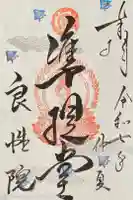 奉拝
令和七年
仲夏
準提堂
良性院